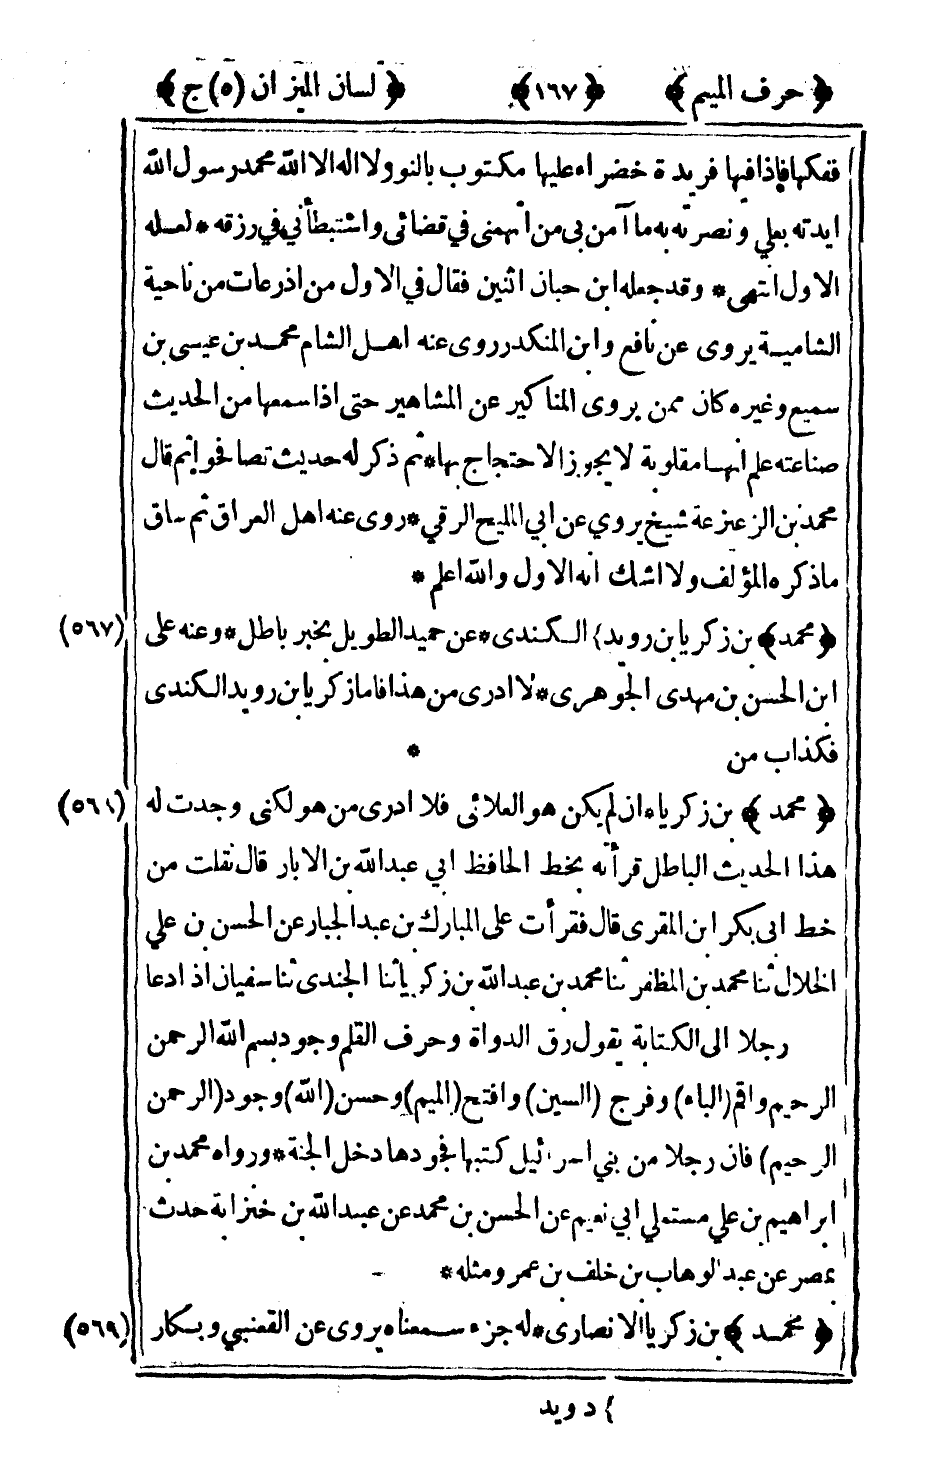 ﴿ حرف الميم ﴾ ﴿ ١٦٧ ﴾ ﴿ لسان الميزان (٥) ج ﴾
ففكها فاذا فيها فريدة خضراء عليها مكتوب بالنور لا اله الا الله محمد رسول الله
ايدته بعلي ونصرته به ما آمن بى من اتهمنى في قضائى واستبطأنى في رزقه * لعله
الاول انتهى * وقد جعله ابن حبان اثنين فقال في الاول من اذرعات من ناحية
الشامية يروى عن نافع وابن المنكدر روى عنه اهل الشام محمد بن عيسى بن
سميع وغيره كان ممن يروى المناكير عن المشاهير حتى اذا سمعها من الحديث
صناعته علم انها مقلوبة لا يجوز الاحتجاج بها * ثم ذكر له حديث تصافحوا ثم قال
محمد بن الزعيزعة شيخ يروي عن ابي المليح الرقي * روى عنه اهل العراق ثم ساق
ما ذكره المؤلف ولا اشك انه الاول والله اعلم *
﴿ محمد ﴾ بن زكريا بن رويد} الكندى * عن حميد الطويل بخبر باطل * وعنه على (٥٦٧)
ابن الحسن بن مهدى الجوهرى * لا ادرى من هذا فاما زكريا بن رويد الكندى
فكذاب من *
﴿ محمد ﴾ بن زكرياء ان لم يكن هو الغلائى فلا ادرى من هو لكنى وجدت له (٥٦٨)
هذا الحديث الباطل قرأته بخط الحافظ ابي عبد الله بن الابار قال نقلت من
خط ابى بكر ابن المقرى قال فقرأت على المبارك بن عبد الجبار عن الحسن بن علي
الخلال ثنا محمد بن المظفر ثنا محمد بن عبد الله بن زكريا ثنا الجندى ثنا سفيان اذ ادعا
رجلا الى الكتابة يقول رق الدواة وحرف القلم وجود بسم الله الرحمن
الرحيم واقم (الباء) وفرج (السين) وافتح (الميم) وحسن (الله) وجود (الرحمن
الرحيم) فان رجلا من بني اسرائيل كتبها فجودها دخل الجنة * ورواه محمد بن
ابراهيم بن علي مستملي ابي نعيم عن الحسن بن محمد عن عبد الله بن خنزابة حدث
بمصر عن عبد الوهاب بن خلف بن عمر ومثله *
﴿ محمد ﴾ بن زكريا الانصارى * له جزء سمعناه يروى عن القعنبي وبكار (٥٦٩)
} دويد